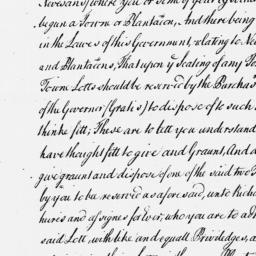 where you or some of your
begun a Town or Plantation, And there being
in the Lawes of this Government, relating to
and Plantations, That upon ye seating of any
Town Lotts should be reserved by the Purchas
of the Governor (Gratis) to dispose of to such
thinke fitt; These are to lett you understand
have thought fitt to give and Graunt, And
give graunt and dispose of one of the said two
by you to be reserved as aforesaid, unto Richa
heires and assignes for Ever, who you are to
said Lott, with like and equall Priviledges, a